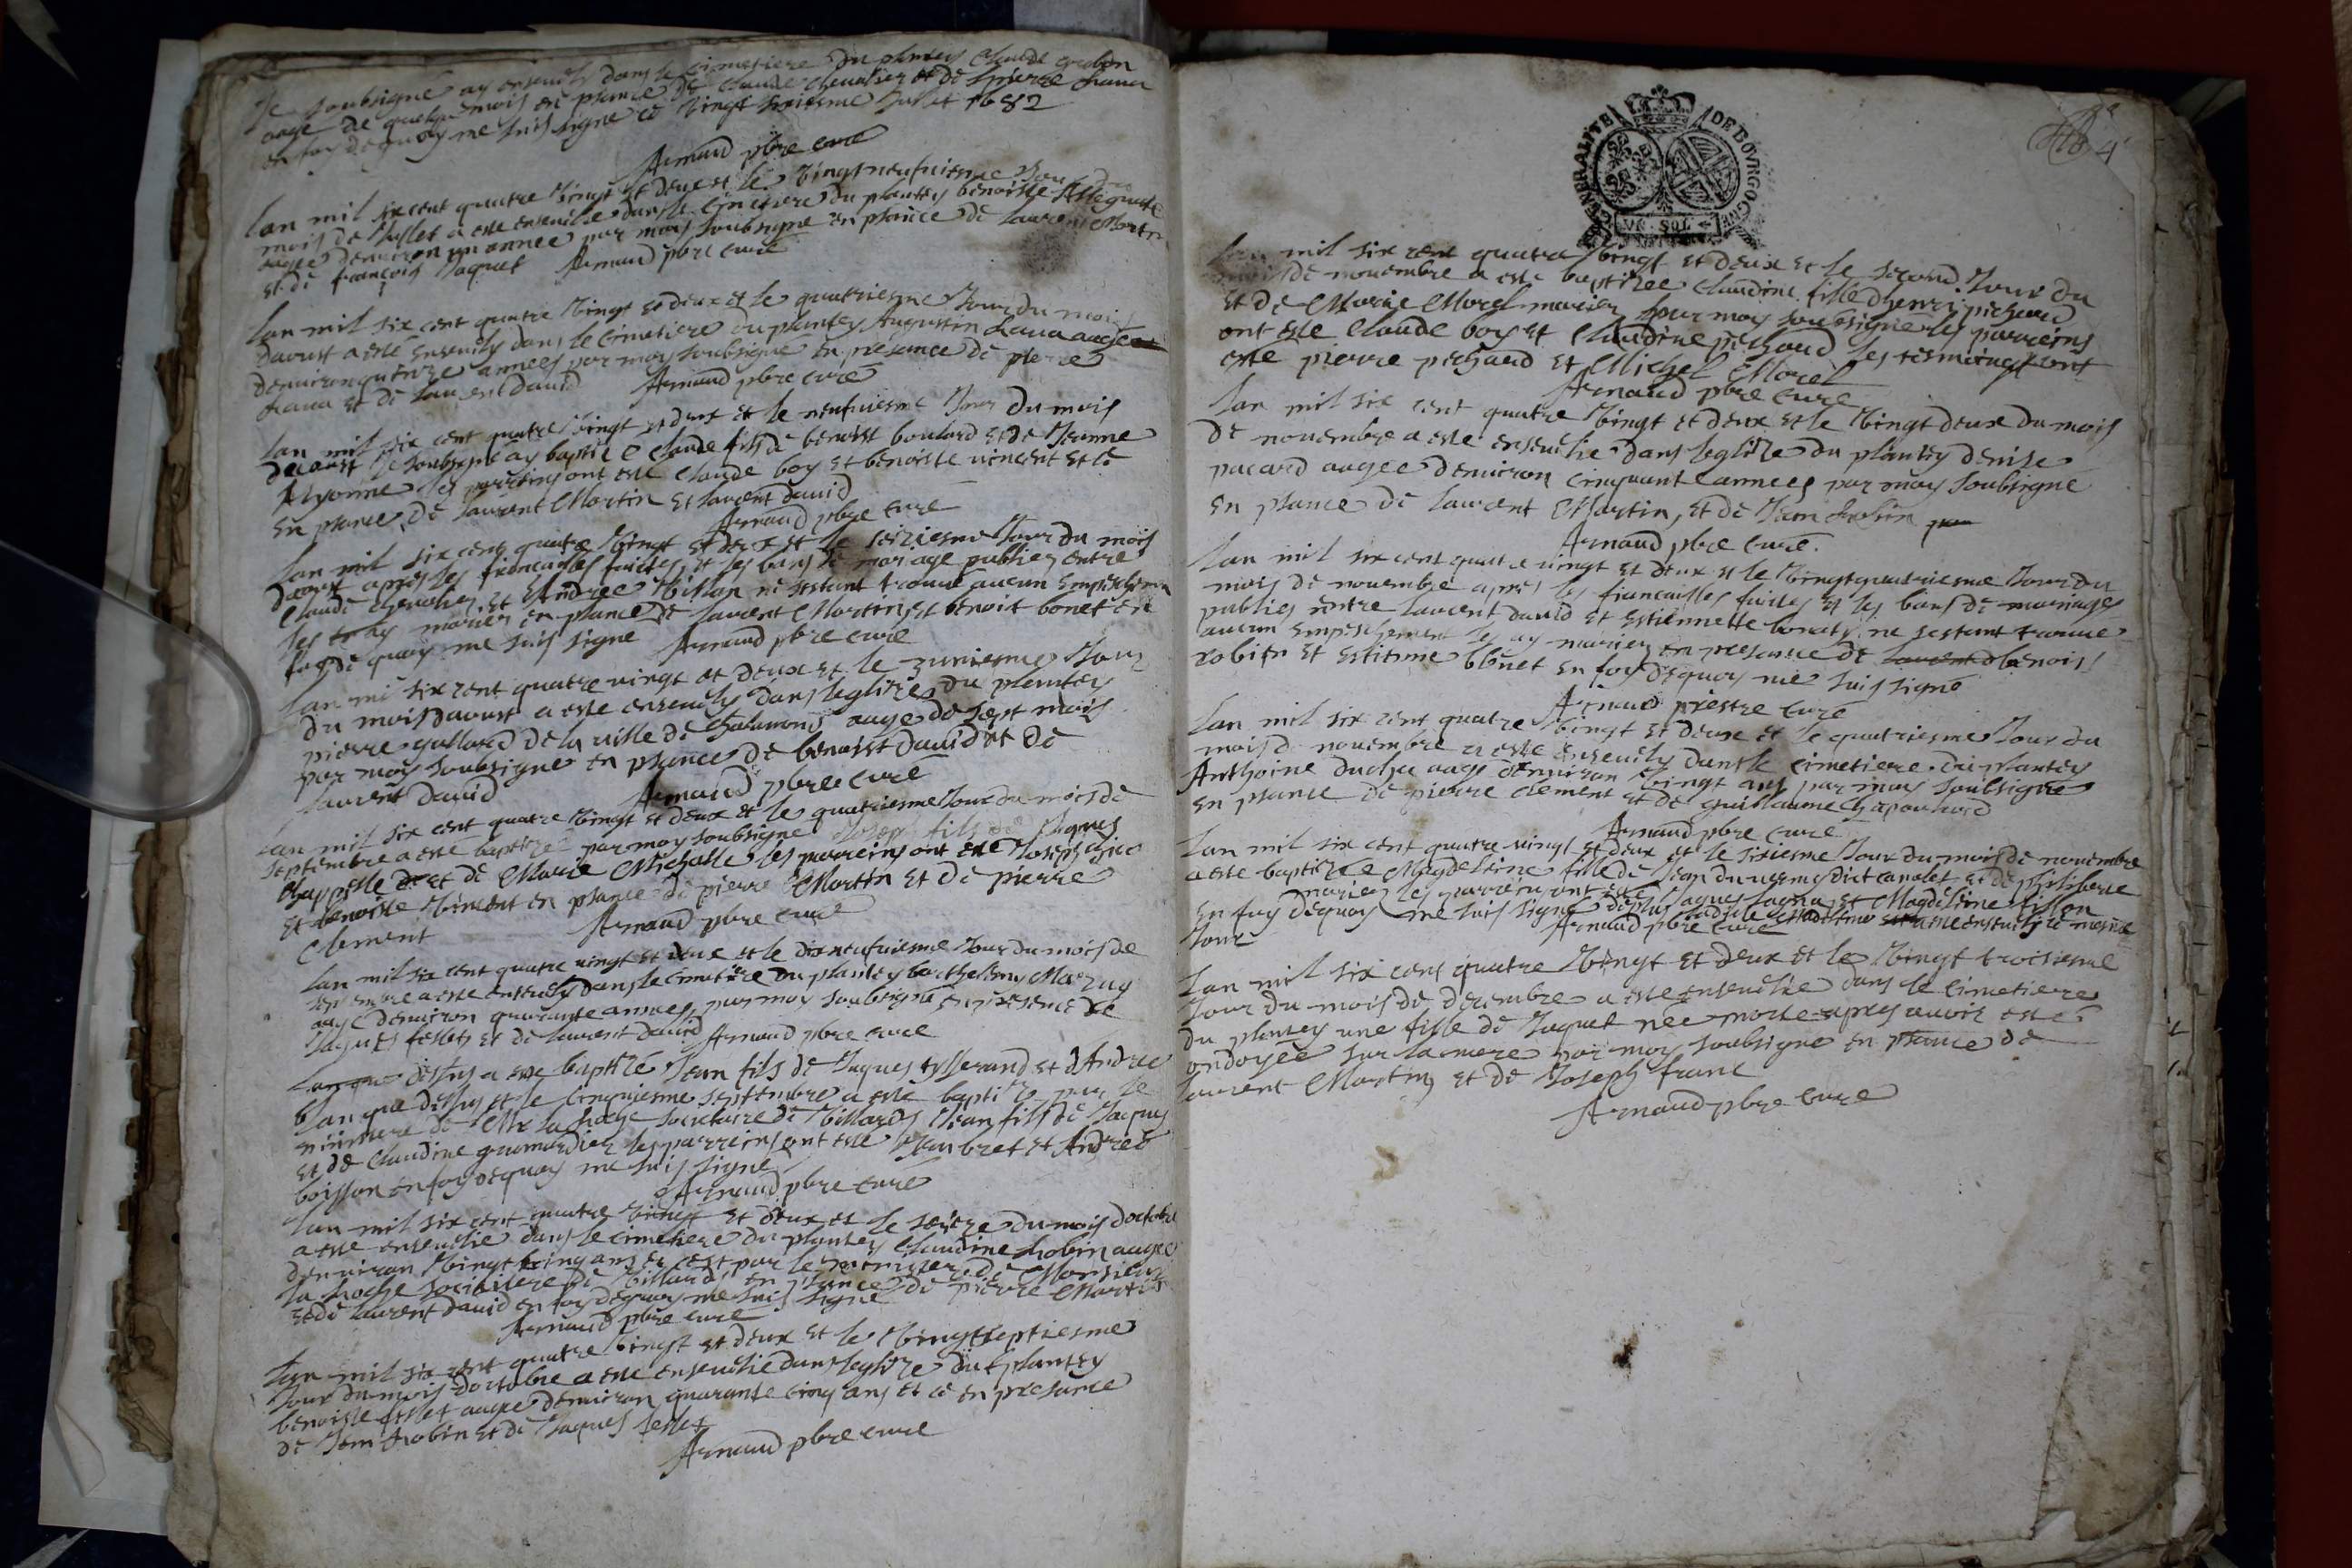 Je soubsigné ay enseuely dans le cimetiere du plantey Claude
aagé de quelque mois en psance de Claude Chevalier et de pierre
en foy de quoy me suis signé ce vingt Juillet 1682
Arnaud pbre curé
Lan mil six cent quatre vingt et deux et le vingtneufuiesme Jour du
mois de Juillet a esté enseuelie dans le cimetiere du plantey benoiste
aagée denuiron un année par moy soubsigné en psance de Laurent Martin
et de françois Jaquet Arnaud pbre curé
Lan mil six cent quatre vingt et deux et le quatriesme Jour du mois
daoust a esté enseuely dans le cimetiere du plantey Augustin aagé
denuiron quinze années par moy soubsigné en présance de pierre
et de Laurent dauid Arnaud pbre curé
Lan mil six cent quatre vingt et deux et le neufuiesme Jour du mois
daoust Je soubsigné ay baptizé Claude fils de benoist boulard et de Jeanne
les parrains ont esté Claude boy et benoiste uincent et ce
en psance de Laurent Martin et Laurent dauid
Arnaud pbre curé
Lan mil six cent quatre vingt et deux et le seiziesme Jour du mois
daoust apres les fiancailles faictes et les bans de mariage publiez entre
Claude cheualier et Andree ne sestant trouué aucun empeschement
les ay mariez en psance de Laurent Martin et benoit bonet en
foy de quoy me suis signé Arnaud pbre curé
Lan mil six cent quatre vingt et deux et le Jour
du mois daoust a esté enseuely dans leglize du plantey
pierre gallard de la uille de Chalamond aagé de sept mois
par moy soubsigné en psance de benoist dauid et de
Laurent dauid Arnaud pbre curé
Lan mil six cent quatre vingt et deux et le quatriesme Jour du mois de
septembre a esté baptizé par moy soubsigné Joseph fils de Jaques
Chappelle et de Marie Michalle les parreins ont esté Joseph
et benoiste vincent en psance de pierre Martin et de pierre
Clement Arnaud pbre curé
Lan mil six cent quatre vingt et deux et le dixneufuiesme Jour du mois de
septembre a esté enseuely dans le cimetiere du plantey barthelemy
aagé denuiron quarante années par moy soubsigné en présence de
Jaques et de Laurent dauid Arnaud pbre curé
Lan que dessus a esté baptizé Jean fils de Jaques tisserand et dAndree
Lan que dessus et le cinquiesme septembre a esté baptizé par le
ministere de Mr la roche de Villards Jean fils de Jaques
et de Claudine les parreins ont esté Jean bret et Andree
boisson en foy de quoy me suis signé
Arnaud pbre curé
Lan mil six cent quatre vingt et deux et le seize du mois doctobre
a esté enseuelie dans le cimetiere du plantey Claudine robin aagée
denuiron vingt cinq ans et cest par le ministere de Monsieur
la roche de Villards en psance de pierre Martin
et de Laurent dauid en foy de quoy me suis signé
Arnaud pbre curé
Lan mil six cent quatre vingt et deux et le vingtseptiesme
Jour du mois doctobre a esté enseuelie dans leglize du plantey
benoiste aagée denuiron quarante cinq ans et ce en présance
de Jean robin et de Jaques
Arnaud pbre curé
GENERALITE DE BOVRGOGNE
VN SOL
4
Lan mil six cent quatre vingt et deux et le second Jour du
mois de nouembre a esté baptizée Claudine fille dhenri pichaud
et de Marie Morel mariez par moy soubsigné les parreins
ont esté Claude boy et Claudine pichaud les tesmoings ont
esté pierre pichaud et Michel Morel
Arnaud pbre curé
Lan mil six cent quatre vingt et deux et le vingt deux du mois
de nouembre a esté enseuelie dans leglize du plantey denise
pacard aagée denuiron cinquante années par moy soubsigné
en psance de Laurent Martin, et de Jean robin
Arnaud pbre curé
Lan mil six cent quatre vingt et deux et le vingtquatriesme Jour du
mois de nouembre apres les fiancailles faictes et les bans de mariage
publies entre Laurent dauid et Estiennette ne sestant trouué
aucun empeschement les ay mariez en présance de benoist
robin et Estienne blenet en foy de quoy me suis signé
Arnaud prestre curé
Lan mil six cent quatre vingt et deux et le quatriesme Jour du
mois de nouembre a esté enseuely dans le cimetiere du plantey
Anthoine duchu aagé denuiron vingt ans par moy soubsigné
en psance de pierre clement et de guillaume
Arnaud pbre curé
Lan mil six cent quatre vingt et deux et le sixiesme Jour du mois de nouembre
a esté baptizée Magdeleine fille de Jean dict et de philiberte
mariez les parreins ont esté Jaques et Magdeleine
en foy de quoy me suis signé ladicte Magdeleine a esté enseuelie le mesme
Jour Arnaud pbre curé
Lan mil six cent quatre vingt et deux et le vingt troisiesme
Jour du mois de decembre a esté enseuelie dans le cimetiere
du plantey une fille de Jaquet née morte apres auoir esté
ondoyée sur la mere par moy soubsigné en psance de
Laurent Martin et de Joseph franc
Arnaud pbre curé